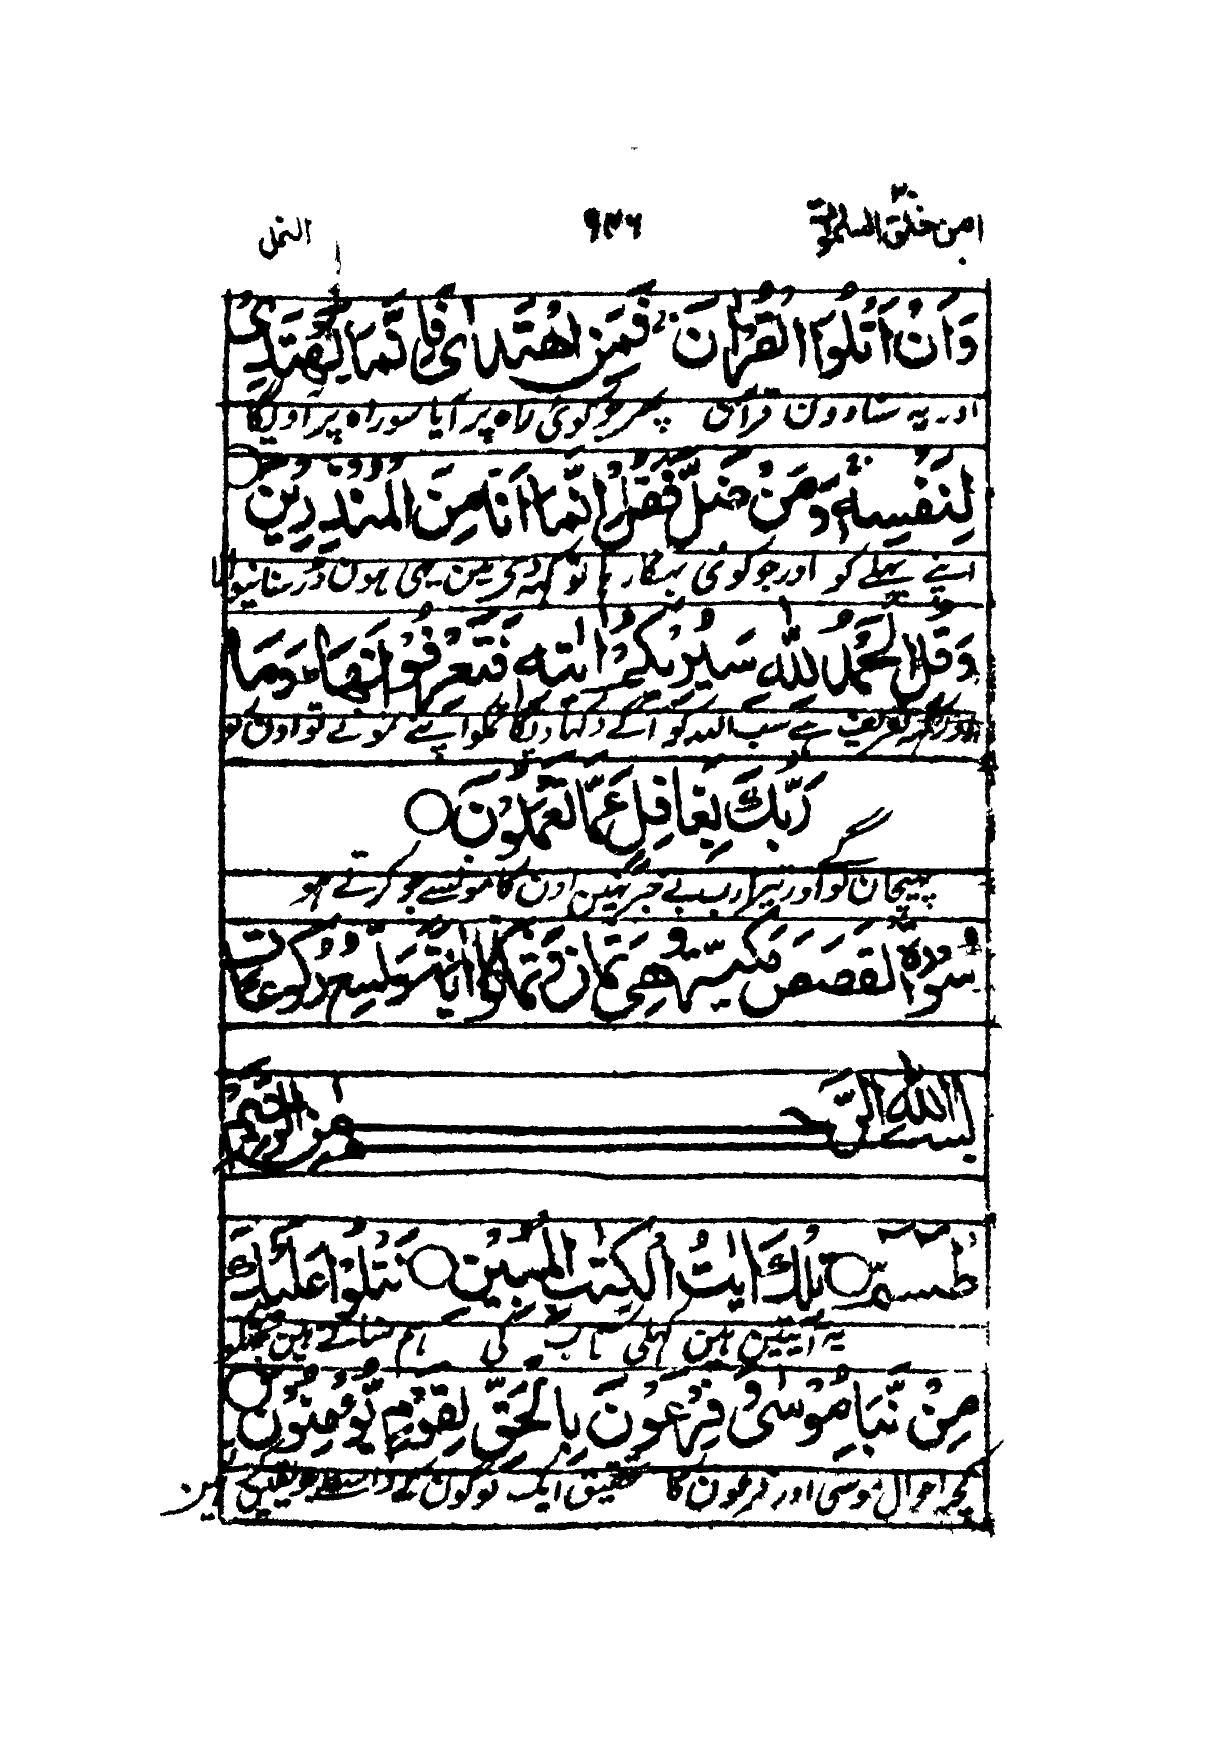 امن خلق السموٰت ۲۰ ۹۳۶ النمل
وَاَنْ اَتْلُوَا الْقُرْاٰنَ ۚ فَمَنِ اهْتَدٰى فَاِنَّمَا يَهْتَدِىْ
اور یہ سنا دون قرآن پھر جو کوئی راہ پر آیا سو راہ پر آویگا
لِنَفْسِهٖ ۚ وَمَنْ ضَلَّ فَقُلْ اِنَّمَا اَنَا مِنَ الْمُنْذِرِيْنَ
اپنے بھلے کو اور جو کوئی بہکا رہا تو کہہ دی مین یہی ہون ڈر سنانیوالا
وَقُلِ الْحَمْدُ لِلّٰهِ سَيُرِيْكُمْ اٰيٰتِهٖ فَتَعْرِفُوْنَهَا ؕ وَمَا
اور کہہ تعریف ہے سب اللہ کو آگے دکہا دیگا تمکو اپنے نمونے تو اون کو
رَبُّكَ بِغَافِلٍ عَمَّا تَعْمَلُوْنَ
پہچان لوگے اور تیرا رب بے خبر نہین اون کامونسے جو کرتے ہو
سُوْرَةُ الْقَصَصِ مَكِّيَّةٌ وَهِىَ ثَمَانٌ وَّثَمَانُوْنَ اٰيَةً وَّتِسْعُ رُكُوْعَاتٍ
بِسْمِ اللّٰهِ الرَّحْمٰنِ الرَّحِيْمِ
طٰسٓمّٓ تِلْكَ اٰيٰتُ الْكِتٰبِ الْمُبِيْنِ نَتْلُوْا عَلَيْكَ
یہ آیتین ہین کھلی کتاب کی ہم سناتے ہین تجھکو
مِنْ نَّبَاِ مُوْسٰى وَفِرْعَوْنَ بِالْحَقِّ لِقَوْمٍ يُّؤْمِنُوْنَ
کچھ احوال موسی اور فرعون کا تحقیق ایک لوگون کے واسطے جو یقین کرتے ہین